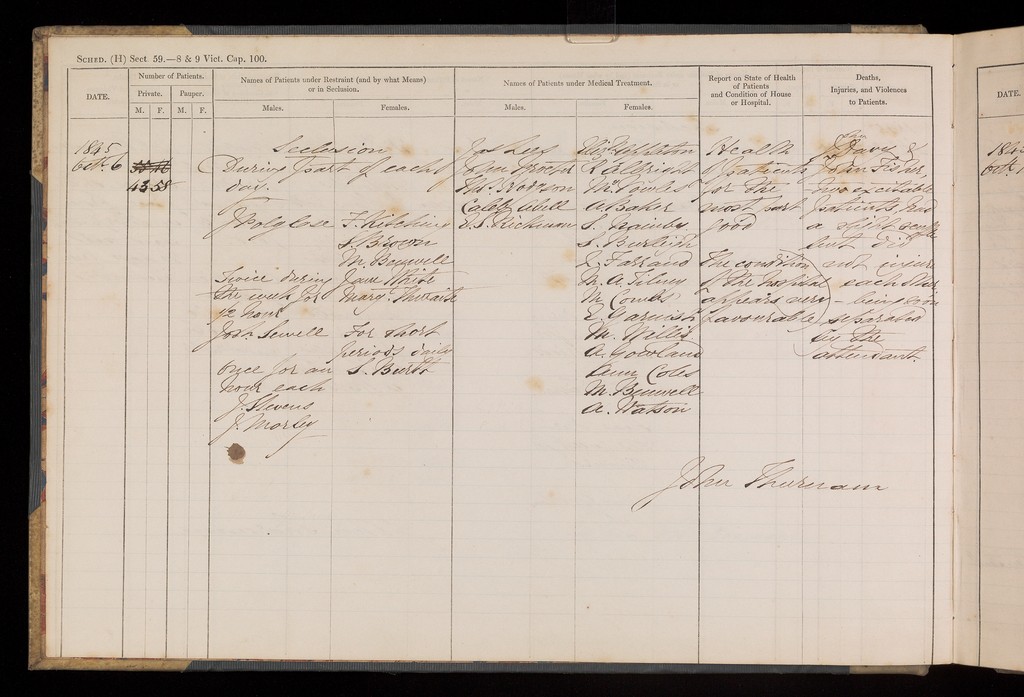 SCHED. (H) Sect 59.—8 & 9 Vict. Cap. 100.
DATE.
Number of Patients.
Private.
Pauper.
M.
F.
M.
F.
Names of Patients under Restraint (and by what Means)
or in Seclusion.
Males.
Females.
Names of Patients under Medical Treatment.
Males.
Females.
Report on State of Health
of Patients
and Condition of House
or Hospital.
Deaths,
Injuries, and Violences
to Patients.
1845
Octr. 6
43 58
Seclusion
During part of each
day.
J Polglase
Twice during
the week for
1/2 hour
Josh. Sewell
once for an
hour each
J. Stevens
J. Morley
F. Kitching
S. Brown
M. Benwell
Jane White
Mary Thwaite
For short
periods daily
S. Burtt
Jas Lees
John Proctor
Thos. Hodgson
Caleb
E. S. Rickman
R Allbright
A Baker
S. Nainby
S. Burleigh
J. Farrand
M. A. Tilney
M Combs
E Garnish
M. Willis
A. Goodland
Ann Coles
M. Benwell
A. Watson
Health
of patients
for the
most part
good
The condition
of the hospital
appears very
favourable
Davis &
John Fisher,
two excitable
patients, had
a slight scuffle
but did
not injure
each other
- being soon
separated
by the
attendant.
John Thurnam
DATE.
1845
Octr.